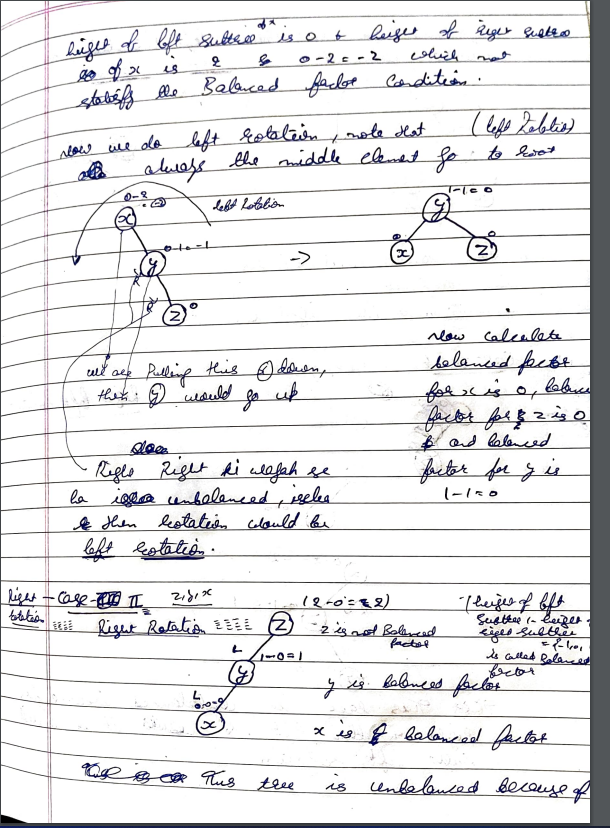 of x
height of left subtree is 0 & height of right subtree
of x is 2 & 0-2 = -2 which not
statisfy the Balanced factor Condition.
now we do left rotation, note that (left Rotation)
always the middle element go to root
0-2
= -2
left Rotation
x
0-1 = -1
y
R
R
z
0
->
1-1 = 0
y
0
x
0
z
we are Pulling this x down,
then y would go up
now calculate
balanced factor
for x is 0, balance
factor for z is 0
and balanced
factor for y is
1-1=0
Right Right ki wajah se
ha unbalanced, iselea
then rotation would be
left rotation.
Right - Case - II z, y, x
rotation
Right Rotation
(2-0 = 2)
z
L
1-0=1
y
L
0-0=0
x
z is not Balanced
factor
y is balanced factor
x is balanced factor
height of left
subtree - height of
right subtree
= {-1,0,1
is called Balanced
factor
This tree is unbalanced because of